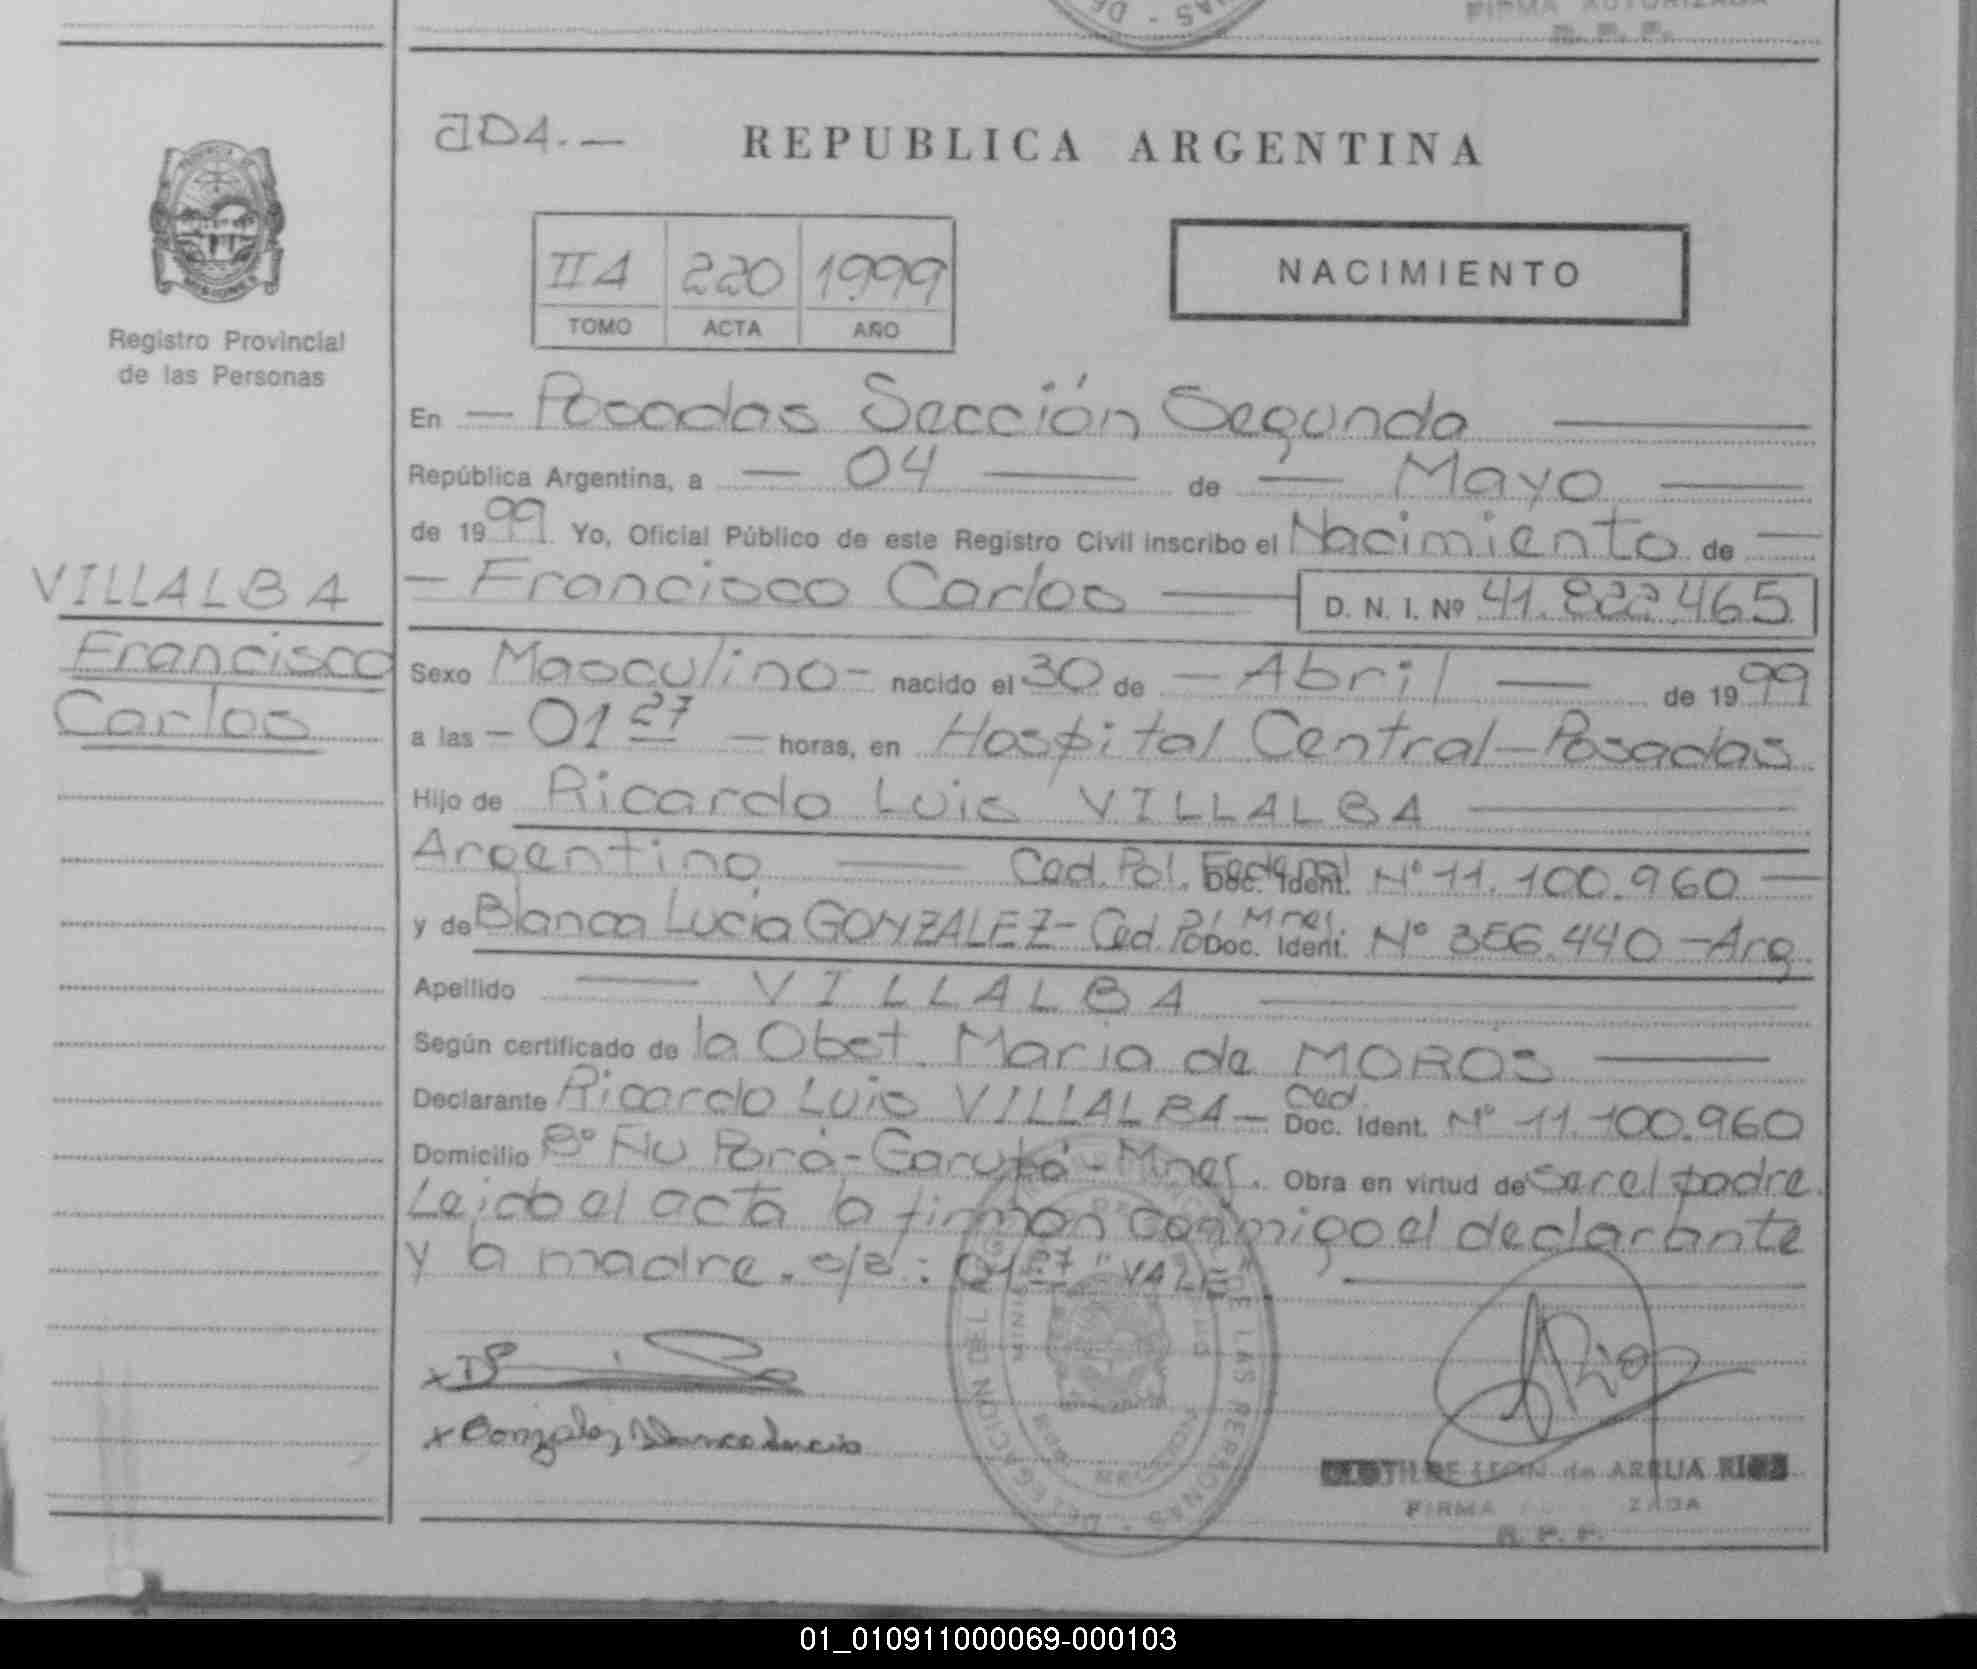 FIRMA AUTORIZADA
R. P. P.
JDA.—
REPUBLICA ARGENTINA
IIA 220 1999
TOMO ACTA AÑO
NACIMIENTO
Registro Provincial
de las Personas
En — Posadas Sección Segunda —
República Argentina, a — 04 — de — Mayo —
de 1999 Yo, Oficial Público de este Registro Civil inscribo el Nacimiento de —
— Francisco Carlos — D. N. I. Nº 41.822.465
VILLALBA
Francisco
Carlos
Sexo Masculino — nacido el 30 de — Abril — de 1999
a las — 01 27 — horas, en Hospital Central — Posadas
Hijo de Ricardo Luis VILLALBA —
Argentino — Ced. Pol. Federal Doc. Ident. Nº 11.100.960 —
y de Blanca Lucia GONZALEZ — Ced. Pol. Mnes. Doc. Ident. Nº 356.440 — Arg.
Apellido — VILLALBA —
Según certificado de la Obst. Maria de MOROS —
Declarante Ricardo Luis VILLALBA — Ced. Doc. Ident. Nº 11.100.960
Domicilio Bº Ñu Porá - Garupá - Mnes. Obra en virtud de ser el padre.
Leido el acta la firman conmigo el declarante
y la madre. s/r: 01 27 "VALE". —
x Gonzalez Blanca Lucia
A Rios
DELEGACION DE LAS PERSONAS
CLOTILDE LEON de ARRUA RIOS
FIRMA AUTORIZADA
R. P. P.
01_010911000069-000103